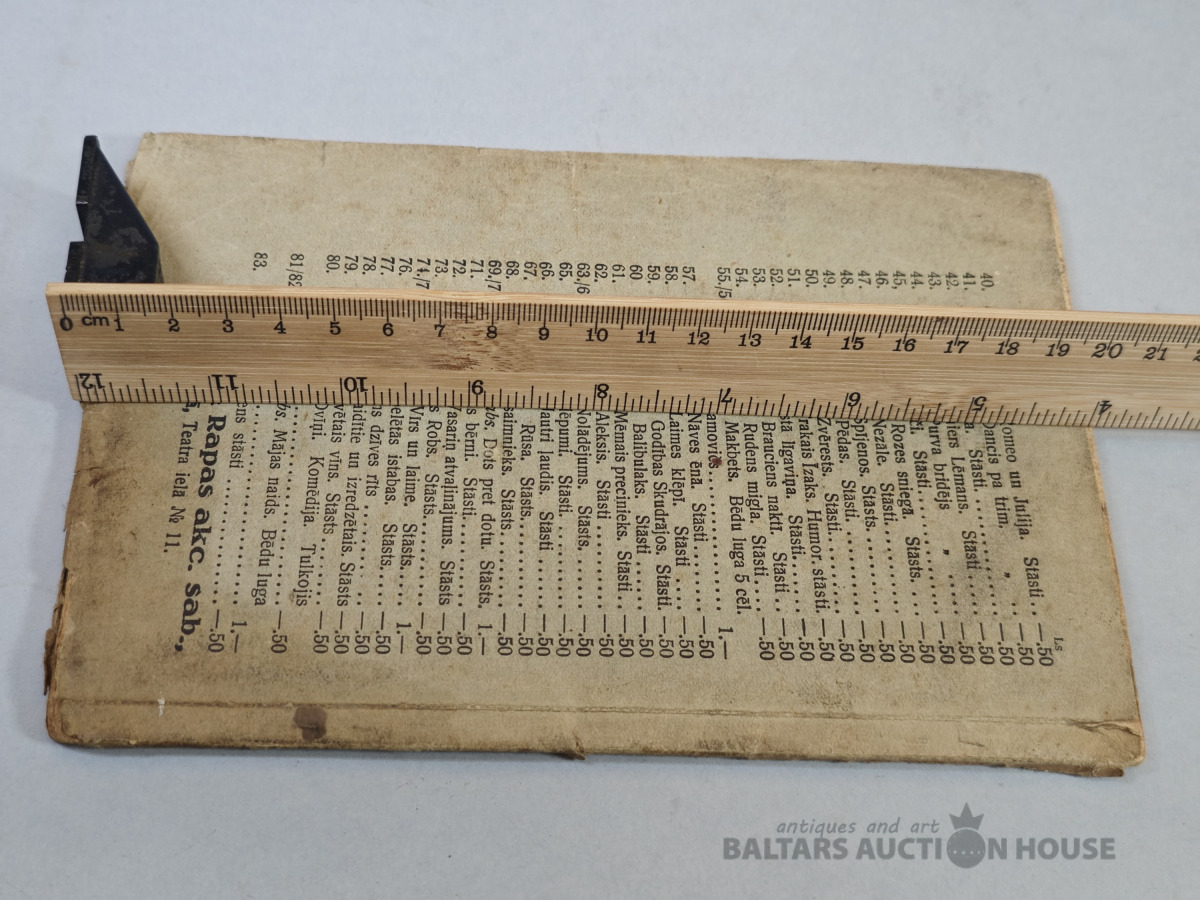 40.
41.
42.
43.
44.
45,
46.
47.
48.
49.
50.
51.
52.
53.
54.
55./5
57.
58.
59.
60
61.
62.
63./6
65.
66.
67.
68.
69./7
71.
72.
73.
74./7
76.
77.
78.
79.
80.
81/82
83.
0 cm 1 2 3 4 5 6 7 8 9 10 11 12 13 14 15 16 17 18 19 20 21
12 11 10 9 8 7 6 5 4
Ls
omeo un Julija. Stāsti .. —.50
ancis pa trim. „ .. —.50
a. Stāsti .... —.50
iers Lērmans. Stāsti .... —.50
urva bridējs „ .... —.50
ti. Stāsti .... —.50
Rozes sniegā. Stāsts. .. —.50
Nezāle. Stāsti .... —.50
Stāsts .... —.50
Pēdas. Stāsti .... —.50
Zvērests. Stāsti .... —.50
rakais Izaks. Humor. stāsti. —.50
stā līgaviņa. Stāsti .. —.50
Brauciens naktī. Stāsti .. —.50
Rudens migla. Stāsti .... —.50
Makbets. Bēdu luga 5 cēl. 1.—
.... —.50
Naves ēnā. Stāsti .... —.50
Laimes klēpī. Stāsti .... —.50
Godības Skudrājos. Stāsti. —.50
Balibulaks. Stāsti .... —.50
Mēmais precinieks. Stāsti .. —.50
Aleksis. Stāsti .... —.50
Noladējums. Stāsts. .... —.50
ēpumi. Stāsti. .... —.50
autri ļaudis. Stāsti .... —.50
Rūsa. Stāsts .... —.50
aimnieks. Stāsts .... —.50
bs. Dots pret dotu. Stāsts. 1.—
s bērni. Stāsti .... —.50
asariņ atvaļinājums. Stāsts —.50
s Robs. Stāsts .... —.50
Virs un laime. Stāsts. 1.—
istabas. Stāsts .... —.50
is dzīves rīts .... —.50
un izredzētais. Stāsts —.50
vētais vīns. Stāsts .... —.50
Komēdija. Tulkojis —.50
bs. Mājas naids. Bēdu luga —.50
.... 1.—
ens stāsti .... —.50
Rapas akc. sab.,
Teatra ielā № 11.
antiques and art
BALTARS AUCTION HOUSE